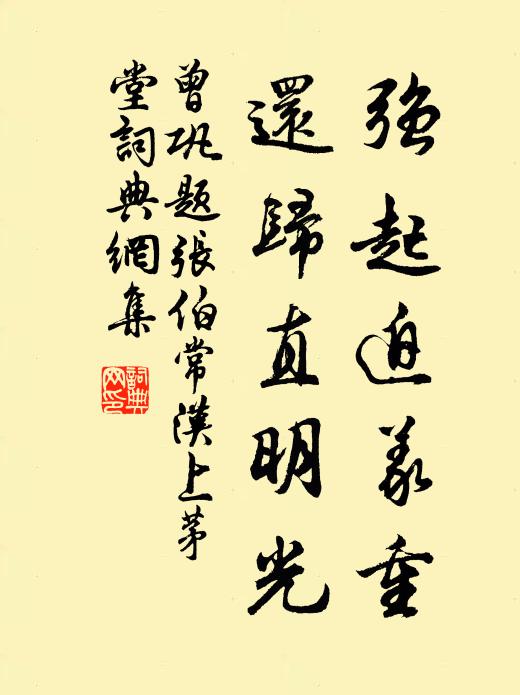 強起迫義重
還歸直明光
曾巩題張伯常漢上茅
堂詞典網集
詞典
网印